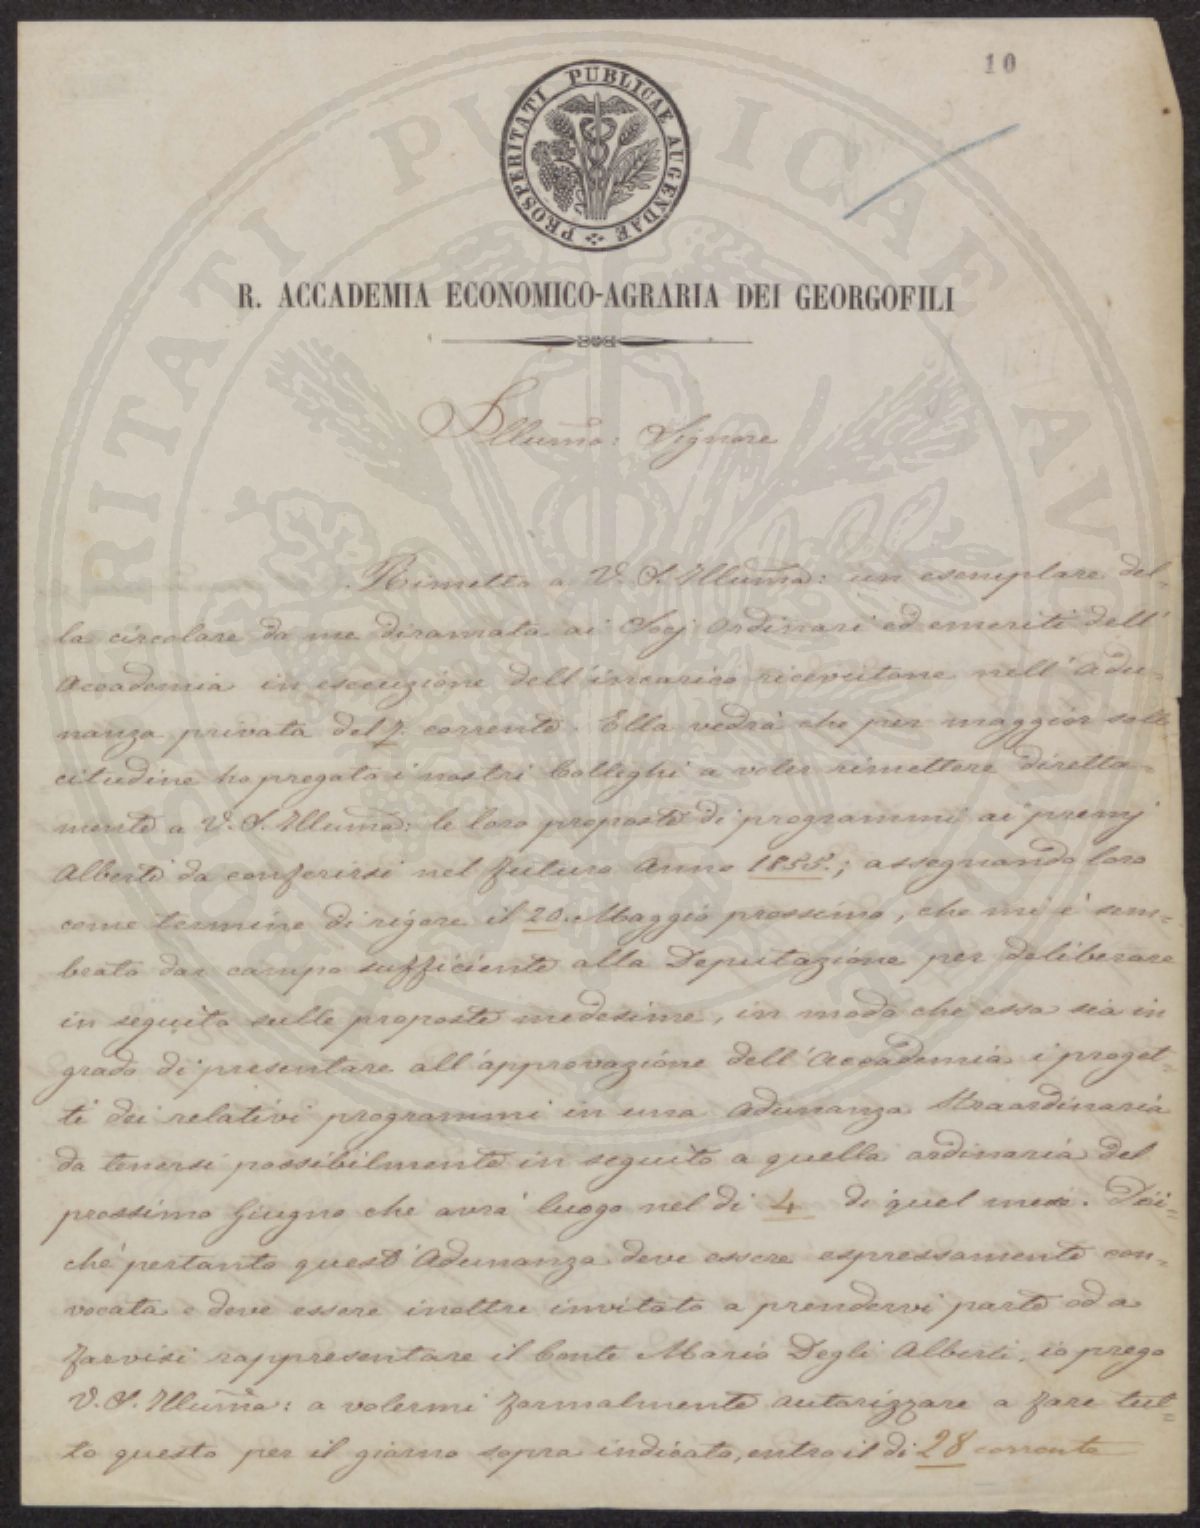 10
PROSPERITATI PUBLICAE AUGENDAE
R. ACCADEMIA ECONOMICO-AGRARIA DEI GEORGOFILI
Illumo: Signore
Rimetto a V. S. Illuma: un esemplare del-
la circolare da me diramata ai Socj ordinari ed emeriti dell'
Accademia in esecuzione dell'incarico ricevutone nell'Adu-
nanza privata del 7. corrente. Ella vedrà che per maggior solle
citudine ho pregato i nostri Colleghi a voler rimettere diretta-
mente a V. S. Illuma: le loro proposte di programmi ai premj
Alberti da conferirsi nel futuro Anno 1855.; assegnando loro
come termine di rigore il 20. Maggio prossimo, che mi è sem-
brato dar campo sufficiente alla Deputazione per deliberare
in seguito sulle proposte medesime, in modo che essa sia in
grado di presentare all'approvazione dell'Accademia i proget-
ti dei relativi programmi in una Adunanza Straordinaria
da tenersi possibilmente in seguito a quella ordinaria del
prossimo Giugno che avrà luogo nel dì 4 di quel mese. Poi=
chè pertanto quest'Adunanza deve essere espressamente con-
vocata e deve essere inoltre invitato a prendervi parte od a
farvisi rappresentare il Conte Mario Degli Alberti, io prego
V. S. Illuma: a volermi formalmente autorizzare a fare tut=
to questo per il giorno sopra indicato, entro il dì 28 corrente